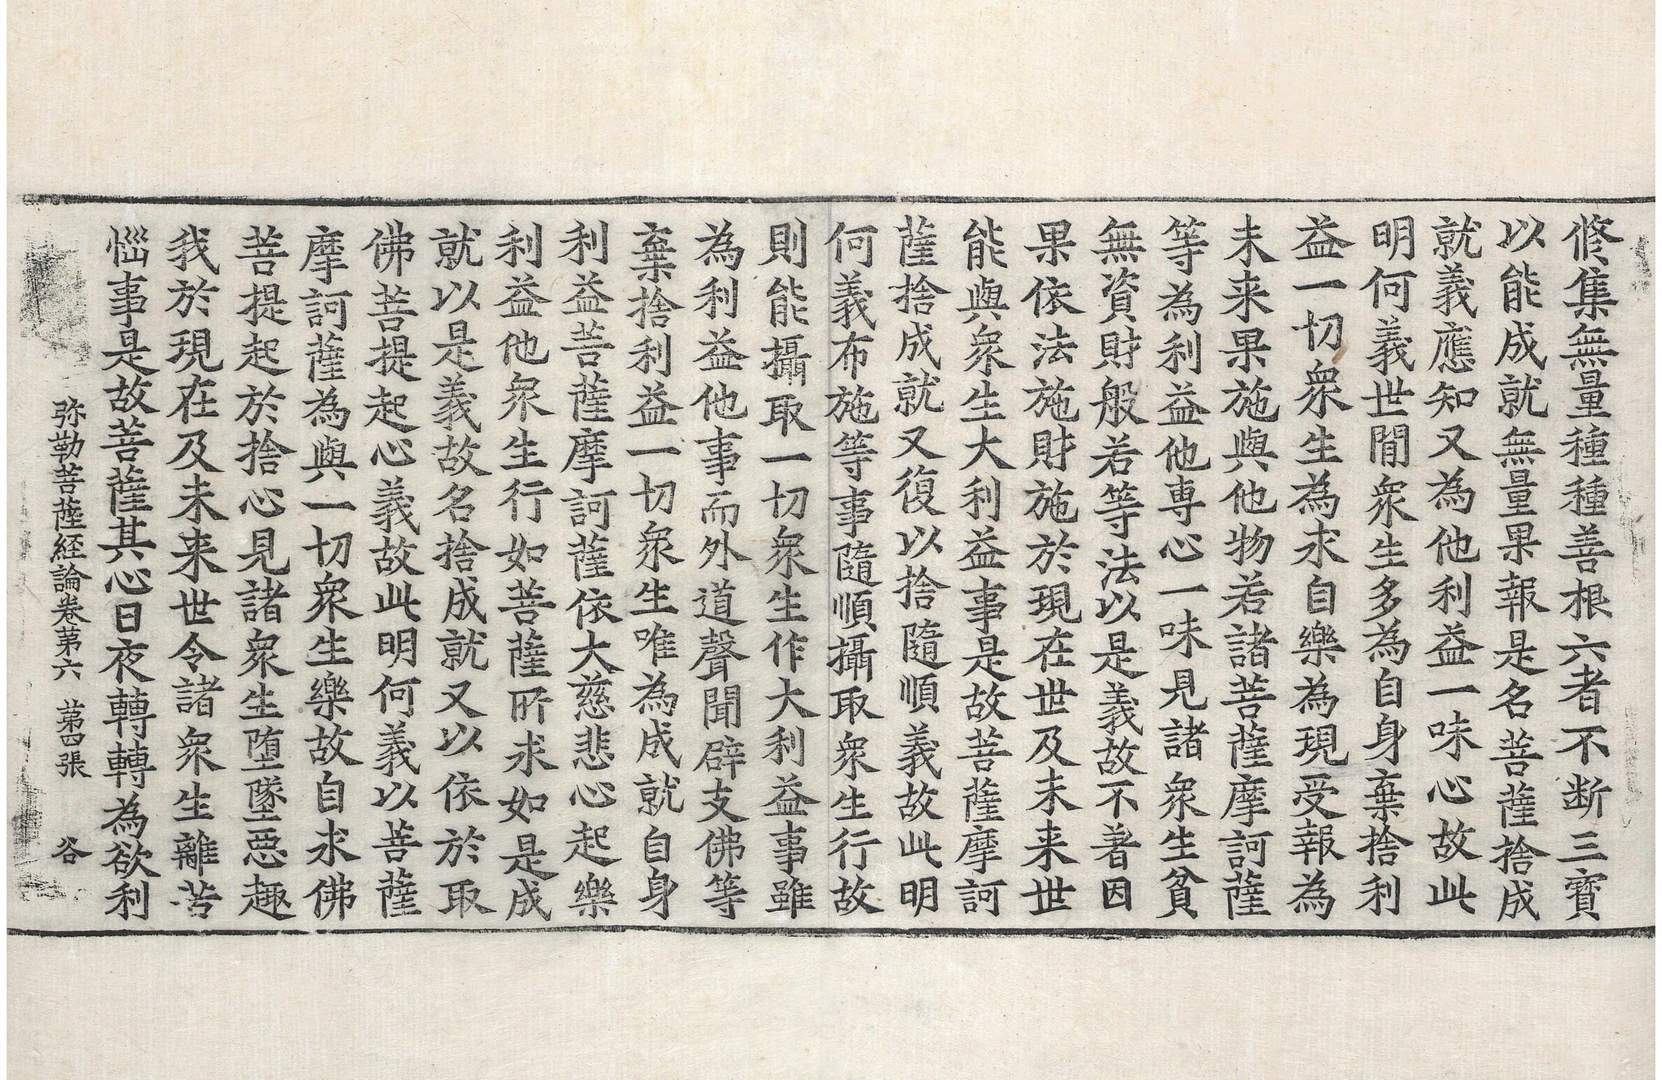 修集無量種種善根六者不断三寳
以能成就無量果報是名菩薩捨成
就義應知又為他利益一味心故此
明何義世間衆生多為自身棄捨利
益一切衆生為求自樂為現受報為
未来果施與他物若諸菩薩摩訶薩
等為利益他専心一味見諸衆生貧
無資財般若等法以是義故不著因
果依法施財施於現在世及未来世
能與衆生大利益事是故菩薩摩訶
薩捨成就又復以捨隨順義故此明
何義布施等事隨順攝取衆生行故
則能攝取一切衆生作大利益事雖
為利益他事而外道聲聞辟支佛等
棄捨利益一切衆生唯為成就自身
利益菩薩摩訶薩依大慈悲心起樂
利益他衆生行如菩薩所求如是成
就以是義故名捨成就又以依於取
佛菩提起心義故此明何義以菩薩
摩訶薩為與一切衆生樂故自求佛
菩提起於捨心見諸衆生堕墜惡趣
我於現在及未来世令諸衆生離苦
惱事是故菩薩其心日夜轉轉為欲利
弥勒菩薩経論卷第六 第四張 谷